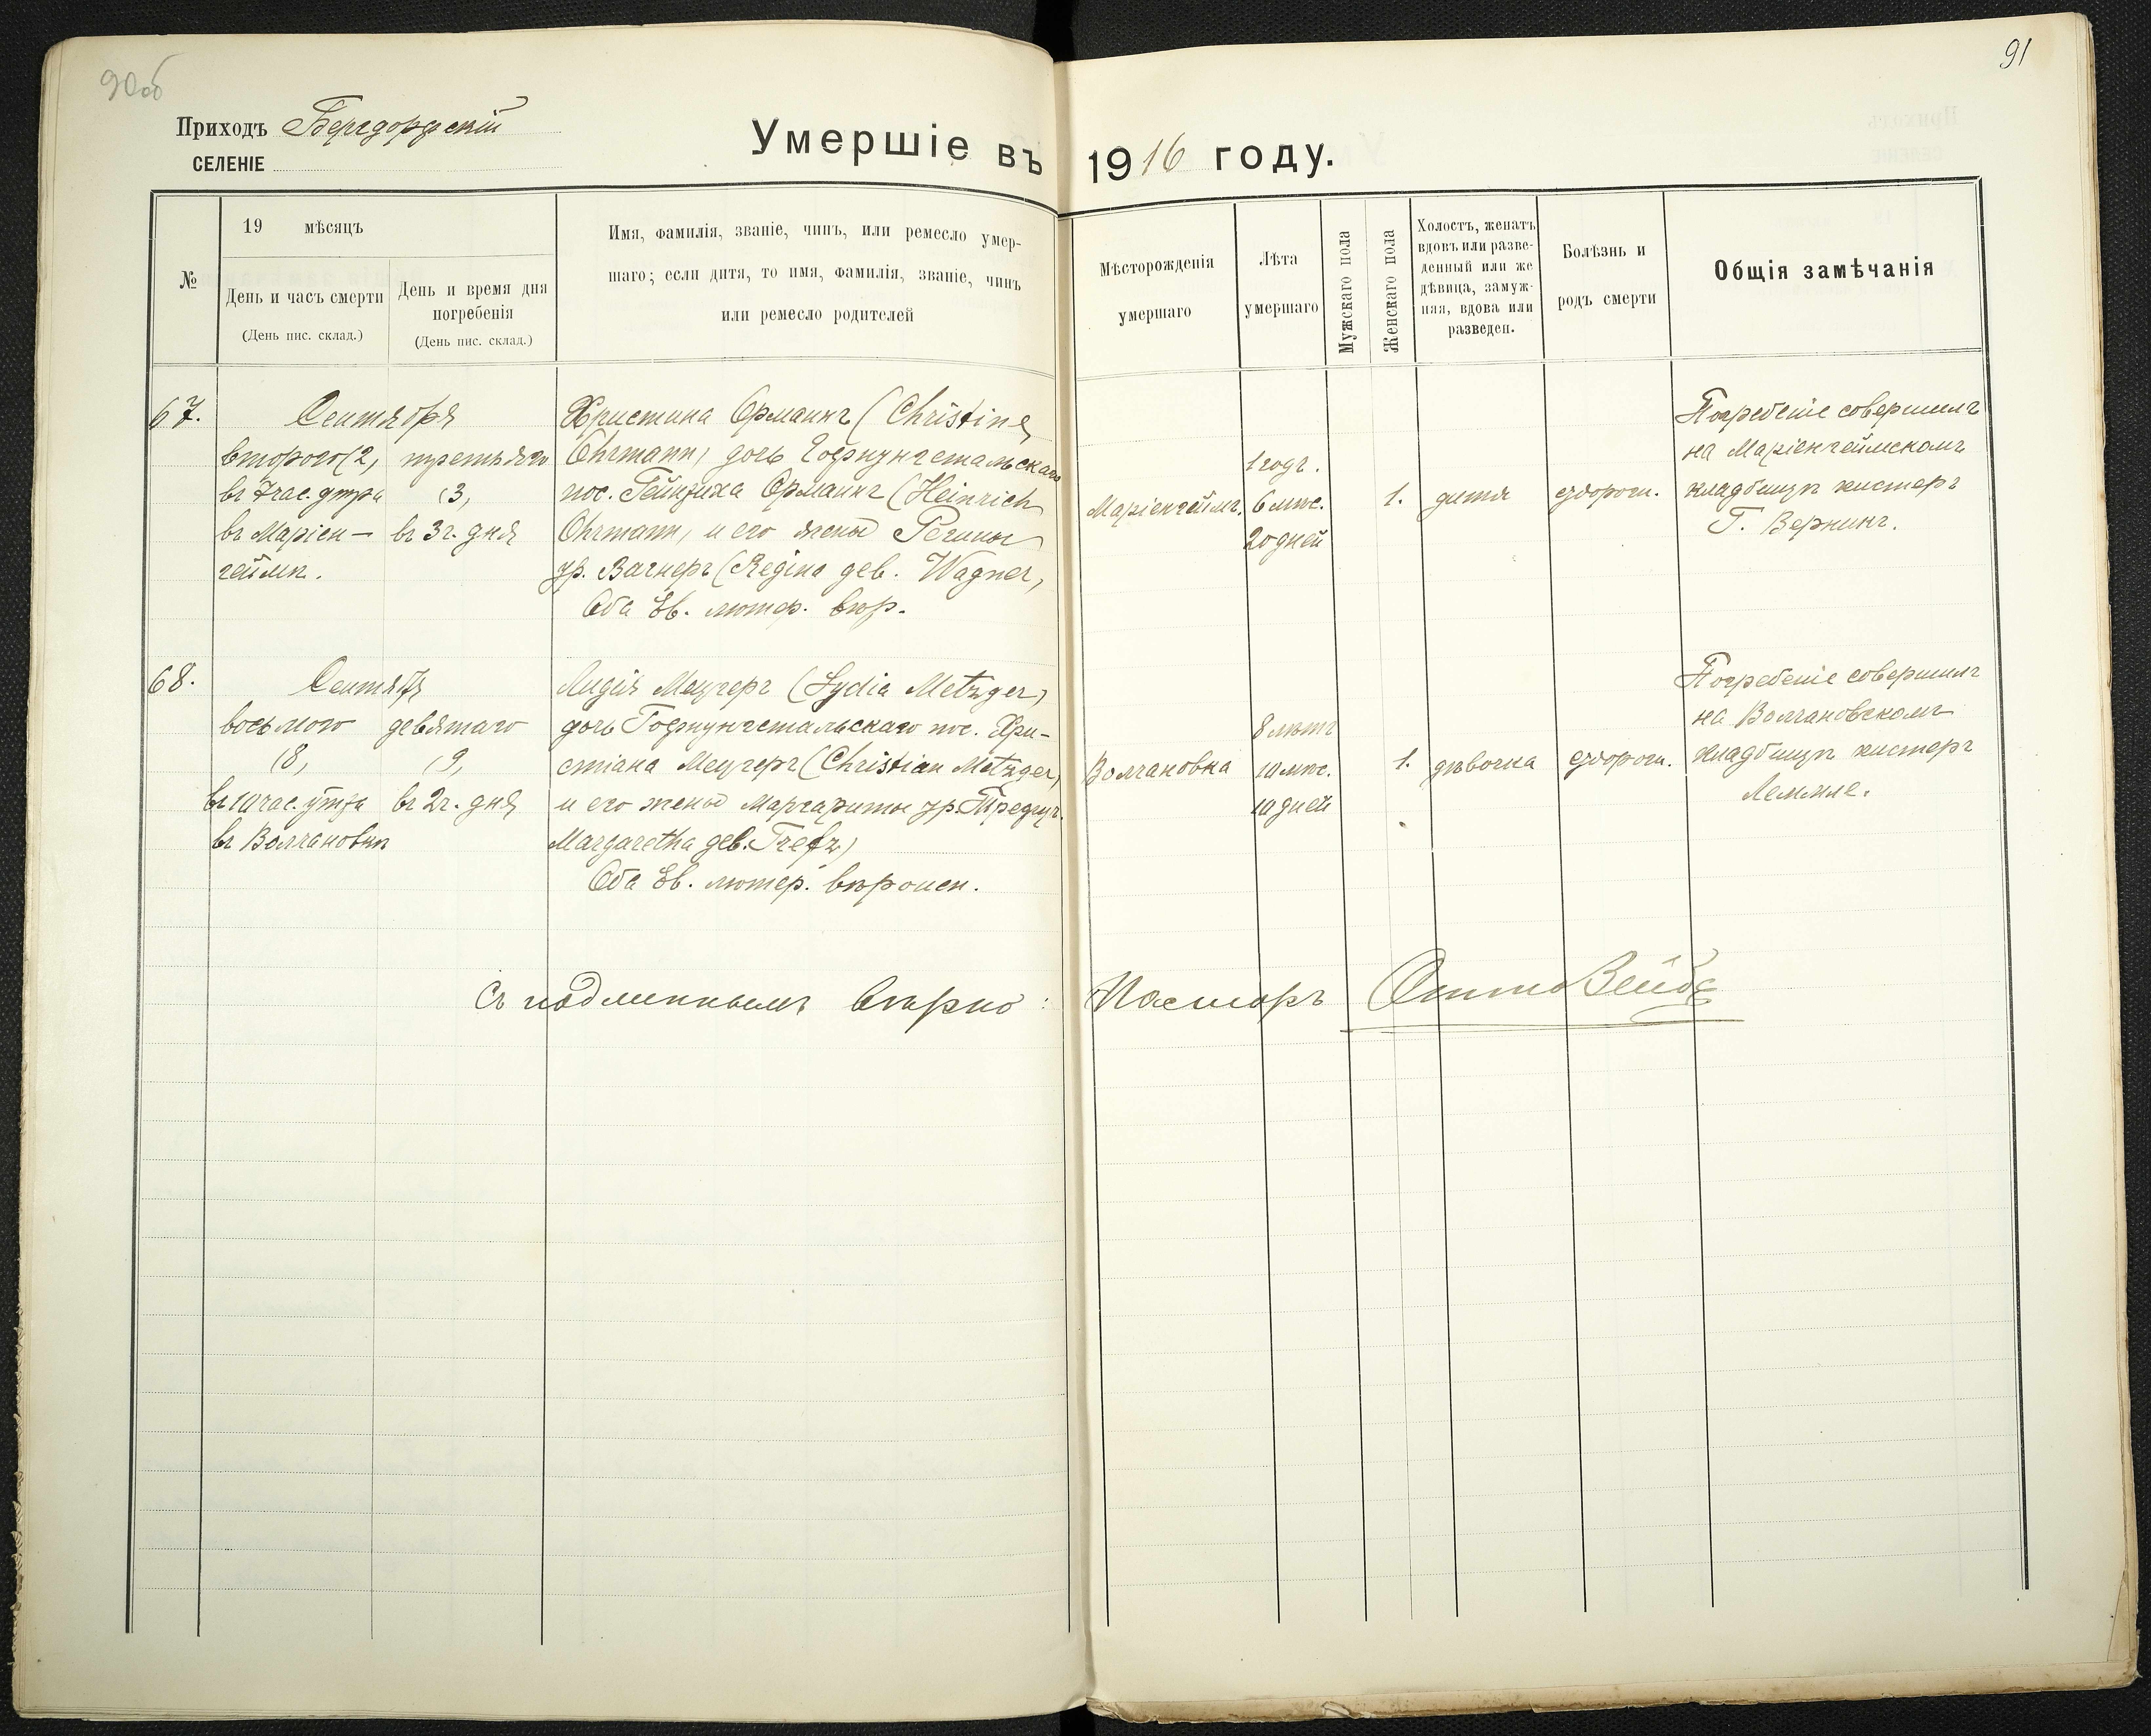 90об
91
Приходъ Бергдорфскій
СЕЛЕНІЕ
Умершіе въ 1916 году.
№
19 мѣсяцъ
День и часъ смерти
(День пис. склад.)
День и время дня
погребенія
(День пис. склад.)
Имя, фамилія, званіе, чинъ, или ремесло умер-
шаго; если дитя, то имя, фамилія, званіе, чинъ
или ремесло родителей
Мѣсторожденія
умершаго
Лѣта
умершаго
Мужскаго пола
Женскаго пола
Холостъ, женатъ
вдовъ или разве-
денный или же
дѣвица, замуж-
няя, вдова или
разведен.
Болѣзнь и
родъ смерти
Общія замѣчанія
67.
Сентября
второго (2)
въ 7 час. утра
въ Маріен-
геймѣ.
третьяго
(3)
въ 3 ч. дня
Христина Орманнъ (Christine
Ohrmann) дочь Гофнунгстальскаго
пос. Гейнриха Орманнъ (Heinrich
Ohrmann) и его жены Регины
ур. Вагнеръ (Regina geb. Wagner)
Оба Ев. лютер. вѣр.
Маріенгеймъ.
1 годъ.
6 мѣс.
20 дней
1.
дитя
Погребеніе совершилъ
на Маріенгеймскомъ
кладбищѣ кистеръ
Г. Вернингъ.
68.
Сентября
восьмого
(8)
въ 10 час. утра
въ Волчановкѣ
девятаго
(9)
въ 2 ч. дня
Лидія Мецгеръ (Lydia Metzger)
дочь Гофнунгстальскаго пос. Хри-
стіана Мецгеръ (Christian Metzger)
и его жены Маргариты ур. Трефцъ
Margaretha geb. Trefz)
Оба Ев. лютер. вѣроисп.
Волчановка
8 лѣтъ
10 мѣс.
10 дней
1.
дѣвочка
Погребеніе совершилъ
на Волчановскомъ
кладбищѣ кистеръ
Леммле.
Съ подлиннымъ вѣрно: Пасторъ Отто Зейбъ